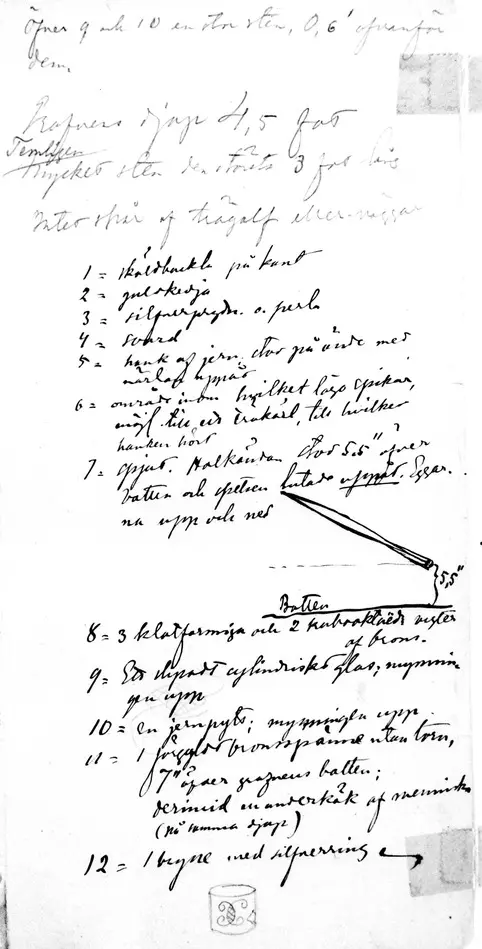 Öfver 9 och 10 en stor sten, 0,6' ofvanför
dem.
Grafvens djup 4,5 fot
Temligen
mycket sten den största 3 fot lång
Intet spår af trägolf eller väggar
1 = sköldbuckla på kant
2 = gulskedja
3 = silfverprydn. o. perla
4 = svärd
5 = hank af jern, stod på ände med
uppåt
6 = område inom hvilket lågo spikar,
möjl till ett träkärl, till hvilket
hanken hört
7 = spjut. Halkändan stod 5,5" öfver
batten och spetsen lutade uppåt. Eggar
na upp och ned
5,5"
Batten
8 = 3 klotformiga och 2 vigter
af brons.
9 = Ett slipadt cylindriskt glas; mynnin
gen upp
10 = en jernpyts; mynningen upp.
11 = 1 förgyldt bronsspänne utan torn,
7" öfver grafvens batten;
derinvid en underkäk af mennisk
(På samma djup)
12 = 1 bryne med silfverring